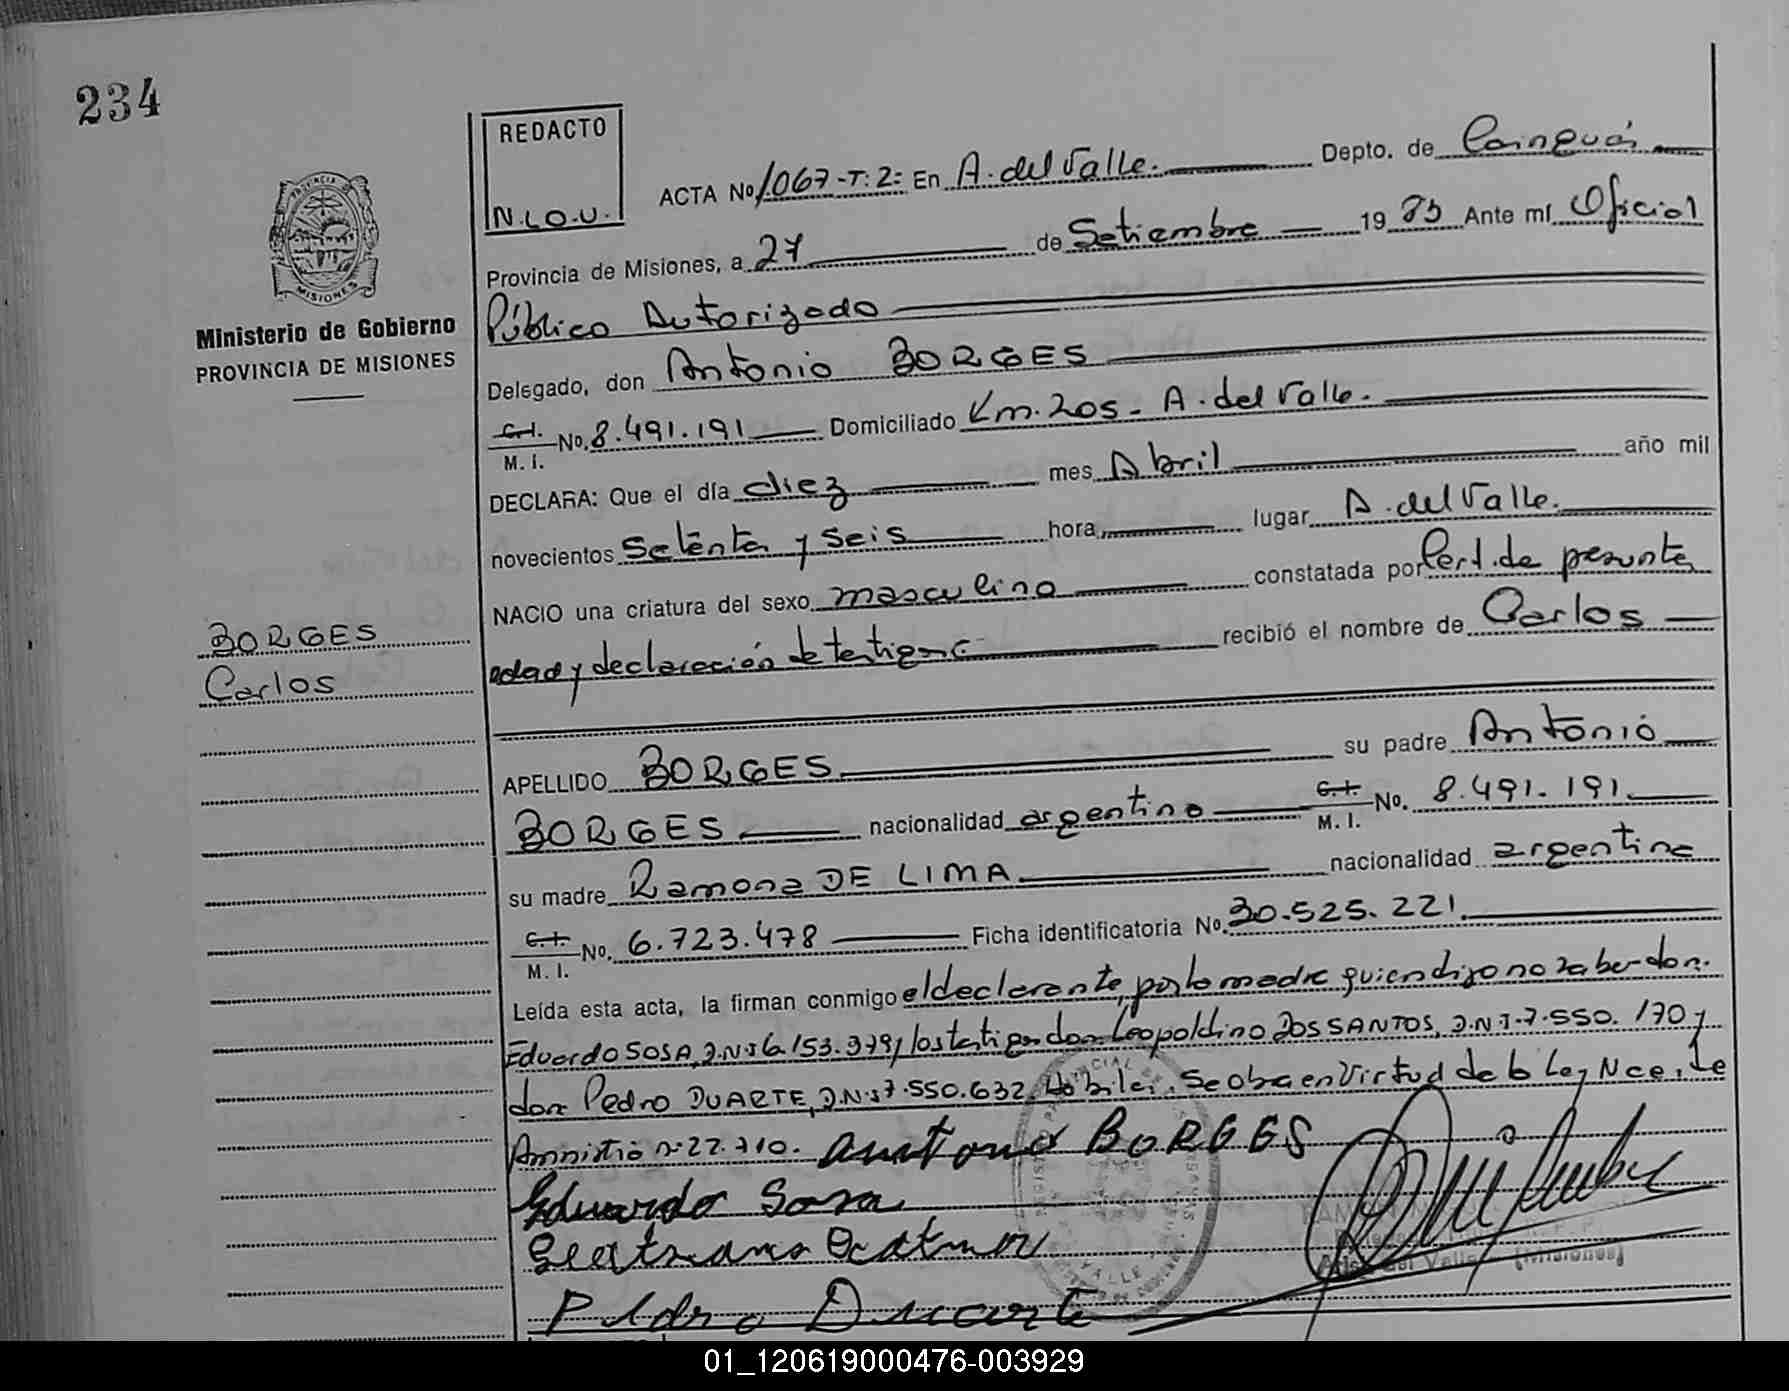 234
REDACTO
N.L.O.U.
ACTA No 1067-T:2: En A. del Valle. Depto. de Cainguás
Provincia de Misiones, a 27 de Setiembre 1983 Ante mí Oficial
Público Autorizado
Delegado, don Antonio BORGES
C.I. M.I. No. 8.491.191 Domiciliado Km. 205 - A. del Valle.
DECLARA: Que el día diez mes Abril año mil
novecientos Setenta y Seis hora lugar A. del Valle.
NACIO una criatura del sexo masculino constatada por Cert. de presunta
edad y declaración de testigos recibió el nombre de Carlos
APELLIDO BORGES su padre Antonio
BORGES nacionalidad argentino C.I. M.I. No. 8.491.191.
su madre Ramona DE LIMA nacionalidad argentina
C.I. M.I. No. 6.723.478 Ficha identificatoria No. 30.525.221.
Leída esta acta, la firman conmigo el declarante, por la madre quien dijo no saber don
Eduardo SOSA, D.N.I 6.153.979, los testigos don Leopoldino DOS SANTOS, D.N.I. 7.550.170 y
don Pedro DUARTE, D.N.I 7.550.632, Hábiles. Se obra en Virtud de la Ley Nac. de
Amnistía nº 22.710. Antonio BORGES
Eduardo Sosa
Pedro Duarte
MISIONES
Ministerio de Gobierno
PROVINCIA DE MISIONES
BORGES
Carlos
01_120619000476-003929